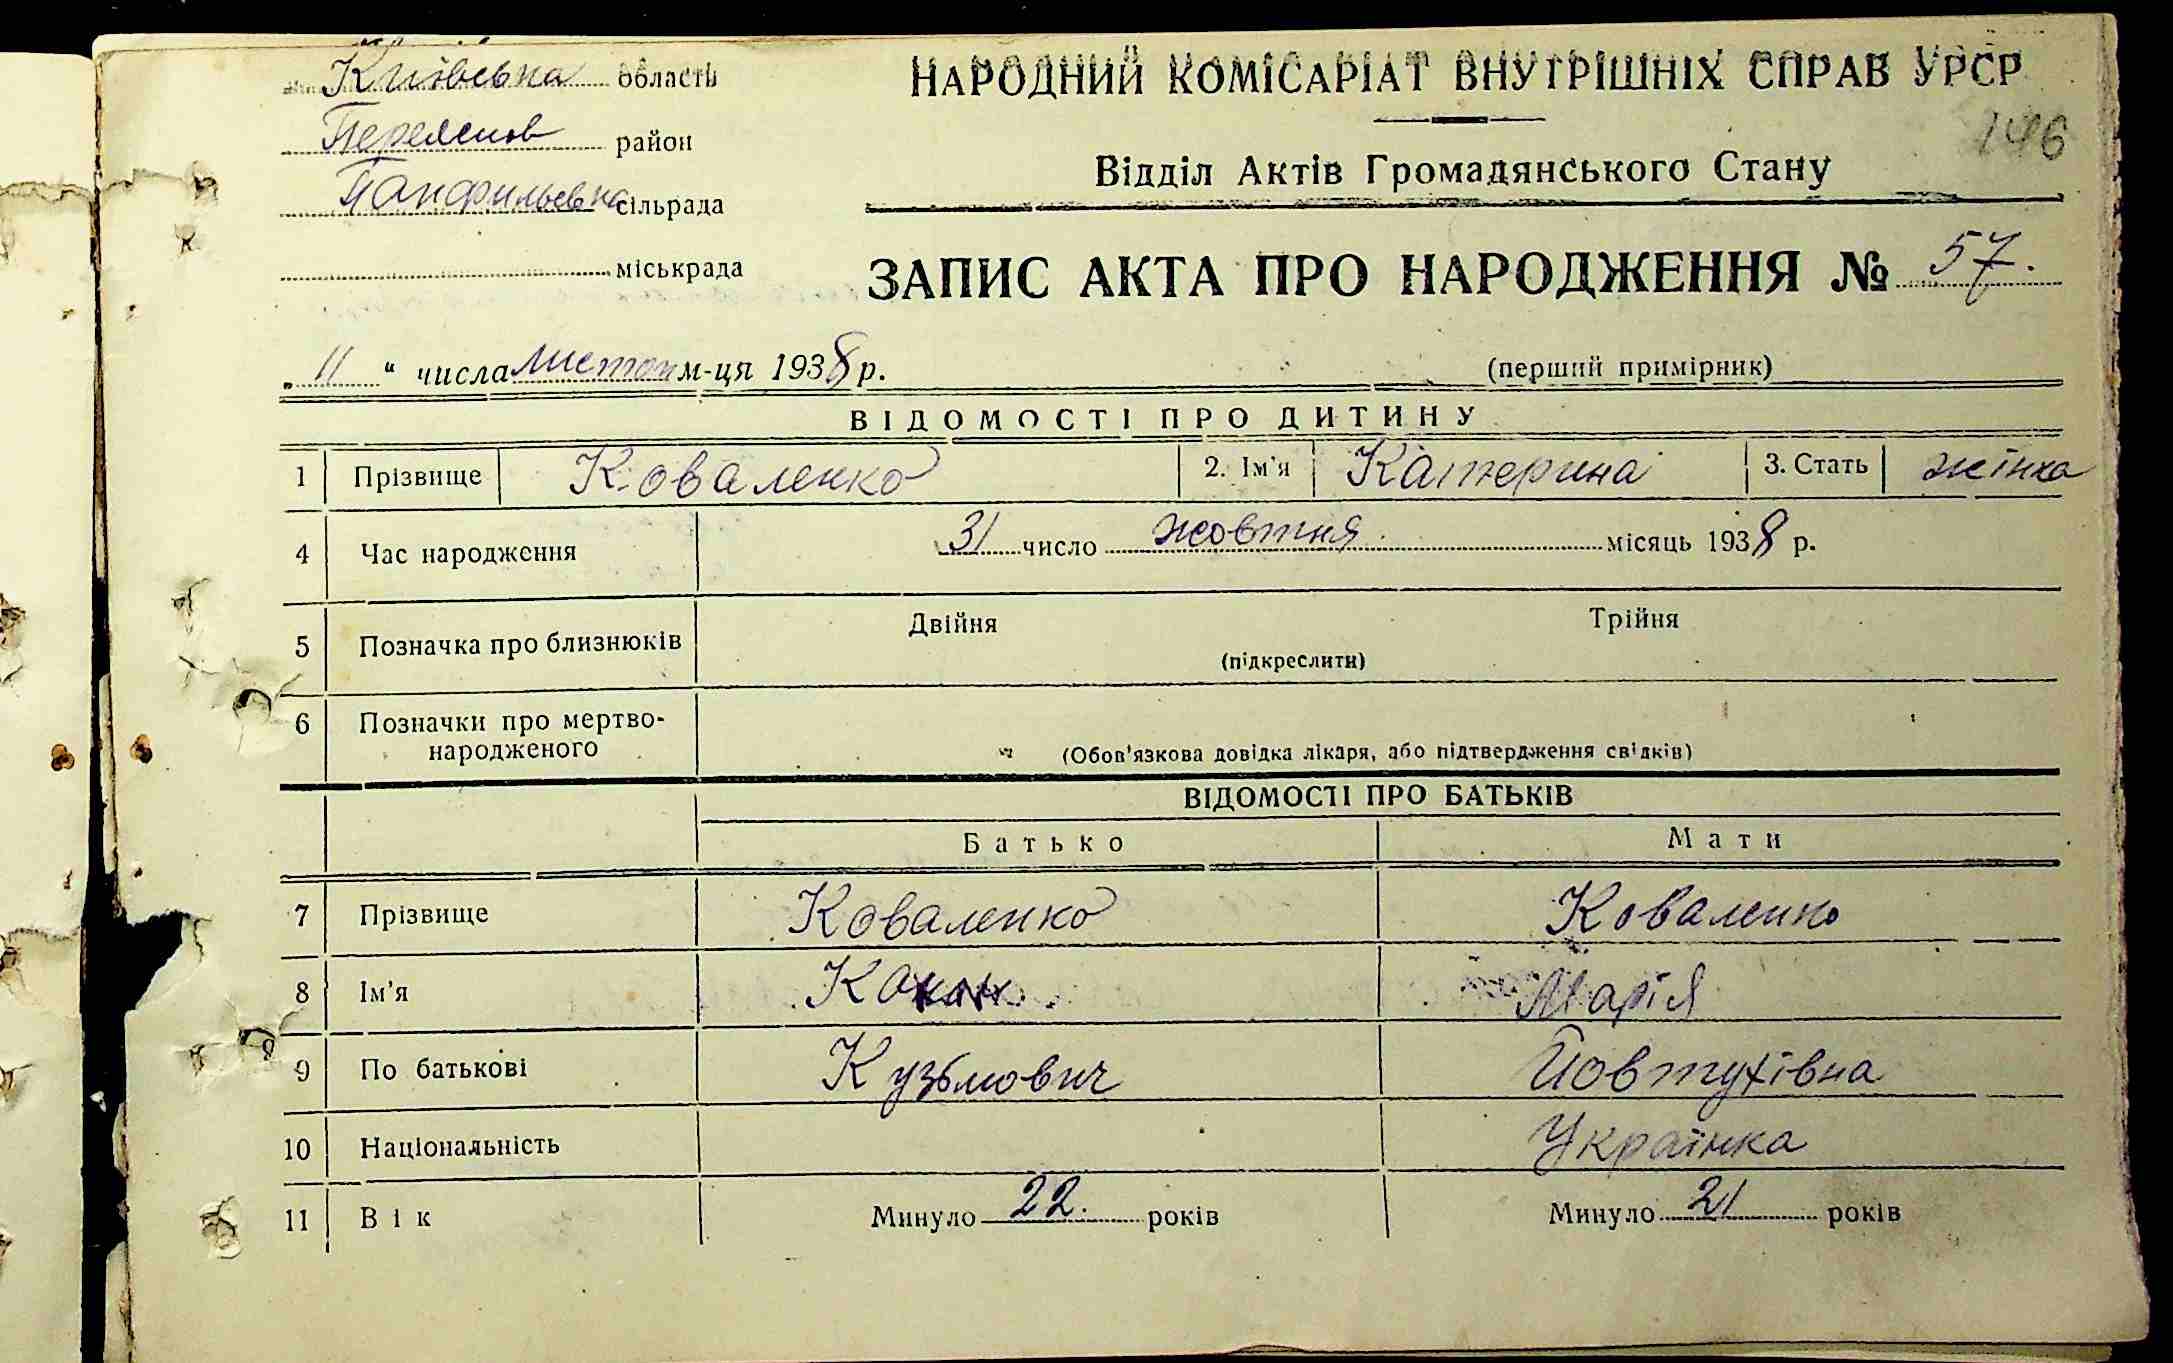 Київська область
НАРОДНИЙ КОМІСАРІАТ ВНУТРІШНІХ СПРАВ УРСР
район
146
Відділ Актів Громадянського Стану
Панфилівська сільрада
міськрада
ЗАПИС АКТА ПРО НАРОДЖЕННЯ № 57.
„11“ числа листоп м-ця 1938 р.
(перший примірник)
ВІДОМОСТІ ПРО ДИТИНУ
1 Прізвище Коваленко 2. Ім'я Катерина 3. Стать жінка
4 Час народження 31 число жовтня місяць 1938 р.
5 Позначка про близнюків Двійня Трійня
(підкреслити)
6 Позначки про мертво-
народженого
(Обов'язкова довідка лікаря, або підтвердження свідків)
ВІДОМОСТІ ПРО БАТЬКІВ
Батько Мати
7 Прізвище Коваленко Коваленко
8 Ім'я Марія
9 По батькові Кузьмович Йовтухівна
10 Національність Українка
11 Вік Минуло 22. років Минуло 21 років